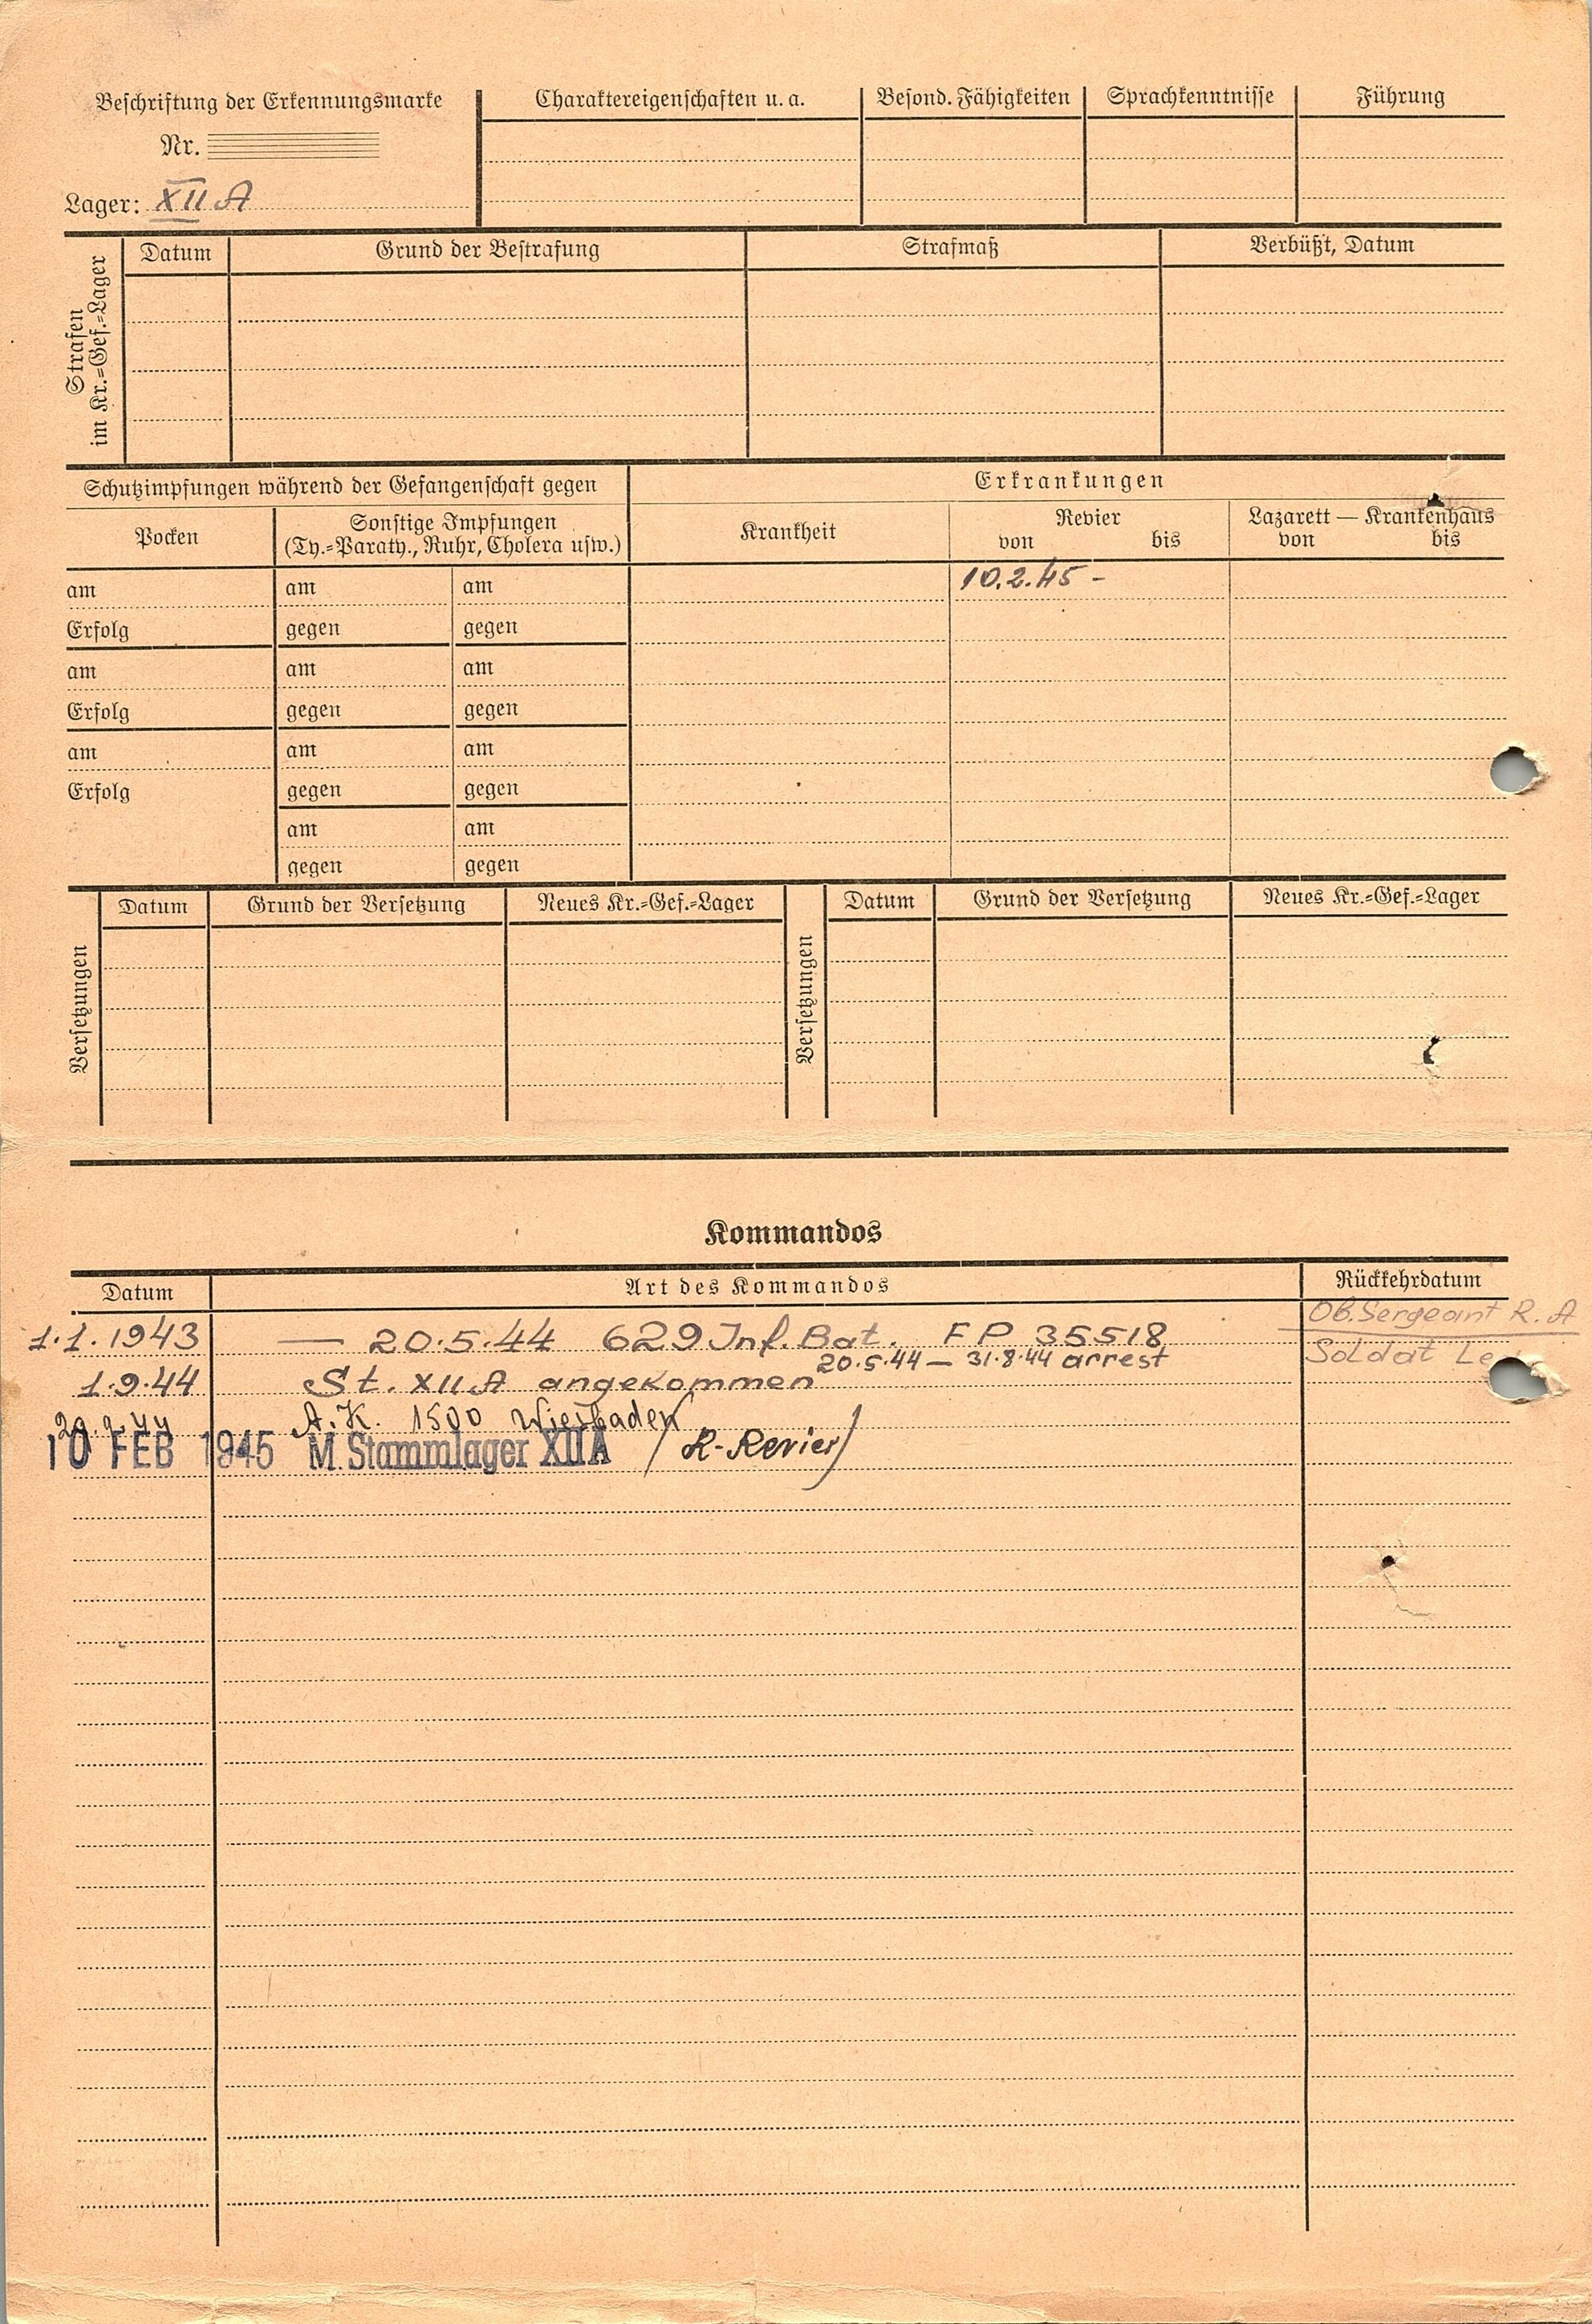 Beschriftung der Erkennungsmarke
Nr.
Lager: XII A
Charaktereigenschaften u. a.
Besond. Fähigkeiten
Sprachkenntnisse
Führung
Strafen
im Kr.=Gef.=Lager
Datum
Grund der Bestrafung
Strafmaß
Verbüßt, Datum
Schutzimpfungen während der Gefangenschaft gegen
Erkrankungen
Pocken
Sonstige Impfungen
(Ty.=Paraty., Ruhr, Cholera usw.)
Krankheit
Revier
von bis
Lazarett — Krankenhaus
von bis
am am am 10.2.45 -
Erfolg gegen gegen
am am am
Erfolg gegen gegen
am am am
Erfolg gegen gegen
am am
gegen gegen
Versetzungen
Datum
Grund der Versetzung
Neues Kr.=Gef.=Lager
Versetzungen
Datum
Grund der Versetzung
Neues Kr.=Gef.=Lager
Kommandos
Datum
Art des Kommandos
Rückkehrdatum
Ob.Sergeant R. A
1.1.1943 — 20.5.44 629 Inf. Bat. FP 35518
Soldat
20.5.44 — 31.8.44 arrest
1.9.44 St. XII A angekommen
20.9.44 A.K. 1500 Wiesbaden
10 FEB 1945 M. Stammlager XII A (R-Revier)